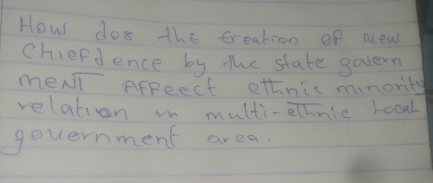 How dos the Creation of New
Chiefdence by the state govern
ment Affeect ethnic minorite
relation in multi-ethnic Local
government area.